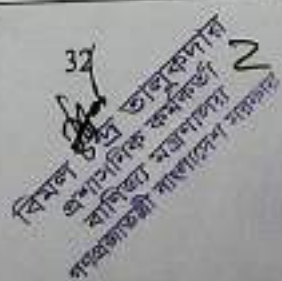 32
2
বিমল চন্দ্র তালুকদার
প্রশাসনিক কর্মকর্তা
বাণিজ্য মন্ত্রণালয়
গণপ্রজাতন্ত্রী বাংলাদেশ সরকার